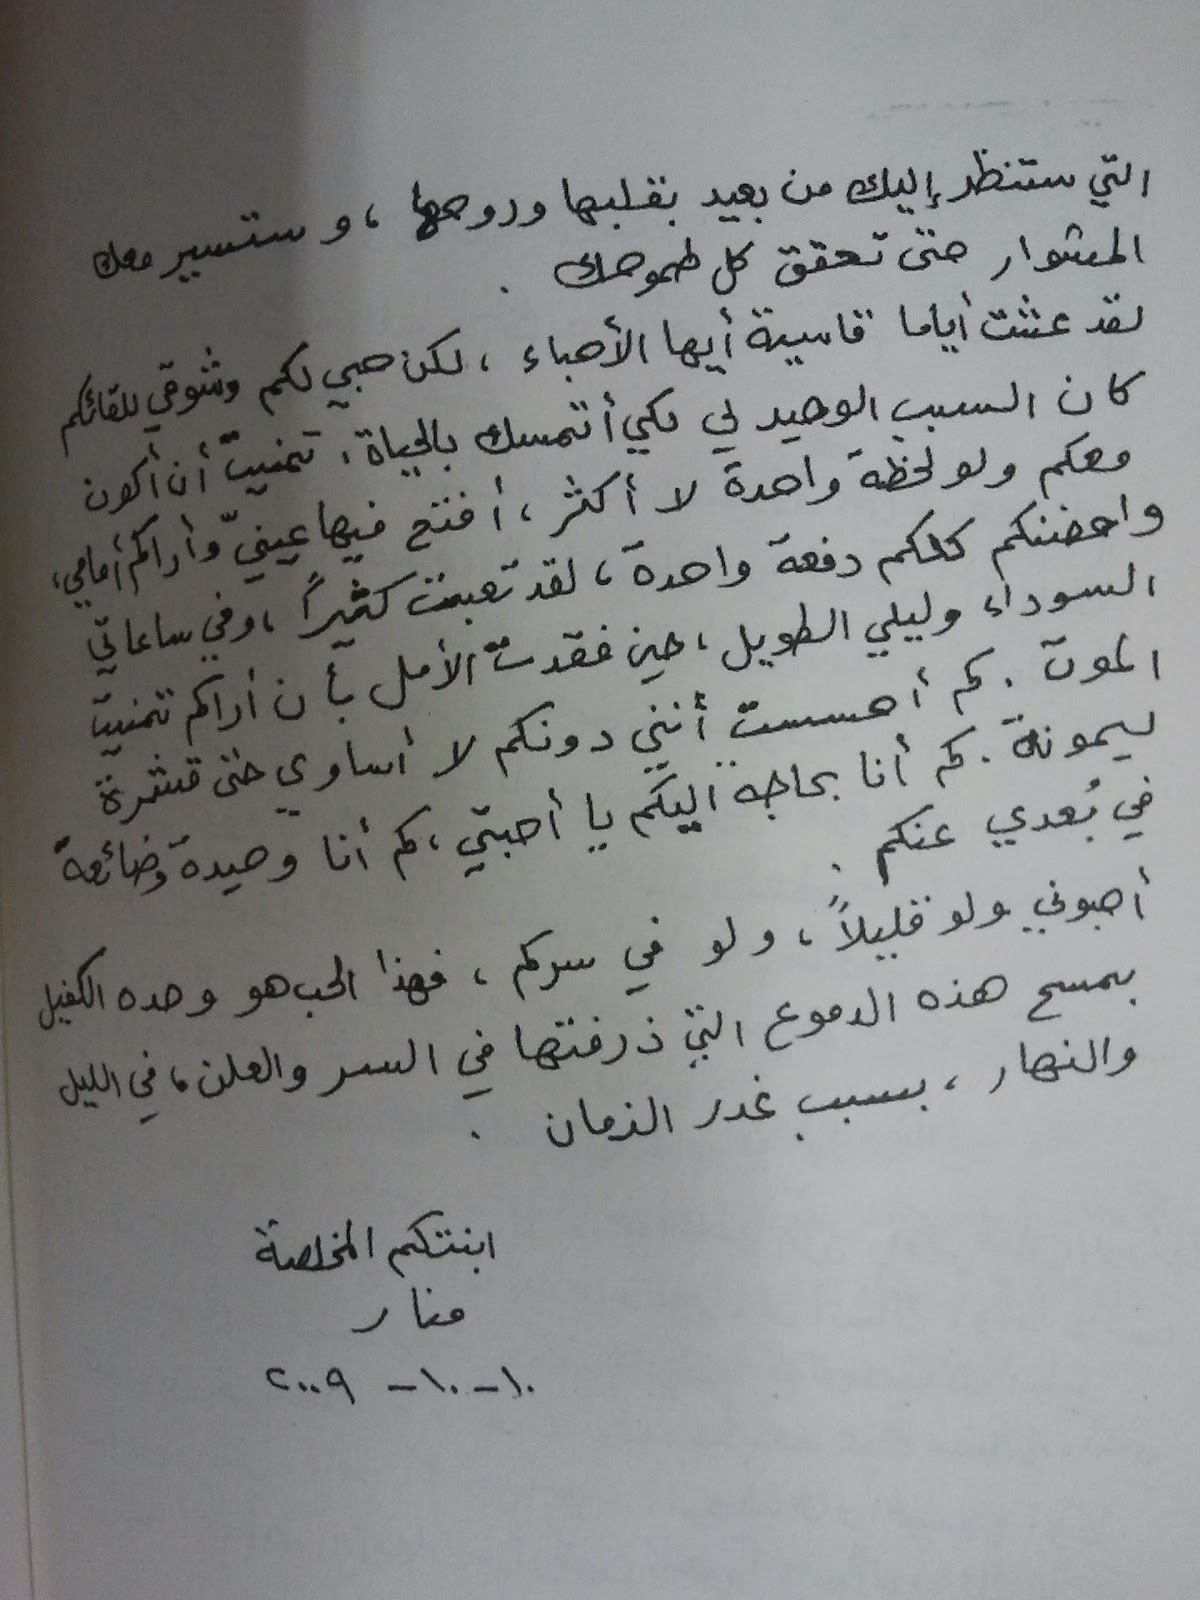 التي ستنظر إليك من بعيد بقلبها وروحها ، و ستسير معك
المشوار حتى تحقق كل طموحك .
لقد عشت أياما قاسية أيها الأحباء ، لكن حبي لكم وشوقي للقائكم
كان السبب الوحيد لي لكي أتمسك بالحياة ، تمنيت أن أكون
معكم ولو لحظة واحدة لا أكثر ، أفتح فيها عينيّ وأراكم أمامي ،
واحضنكم كلكم دفعة واحدة ، لقد تعبت كثيراً ، وفي ساعاتي
السوداء وليلي الطويل ، حين فقدت الأمل بأن أراكم تمنيت
الموت . كم أحسست أنني دونكم لا أساوي حتى قشرة
ليمونة . كم أنا بحاجة اليكم يا أحبتي ، كم أنا وحيدة وضائعة
في بُعدي عنكم .
أحبوني ولو قليلاً ، ولو في سركم ، فهذا الحب هو وحده الكفيل
بمسح هذه الدموع التي ذرفتها في السر والعلن ، في الليل
والنهار ، بسبب غدر الزمان .
ابنتكم المخلصة
منار
١٠-١٠- ٢٠٠٩